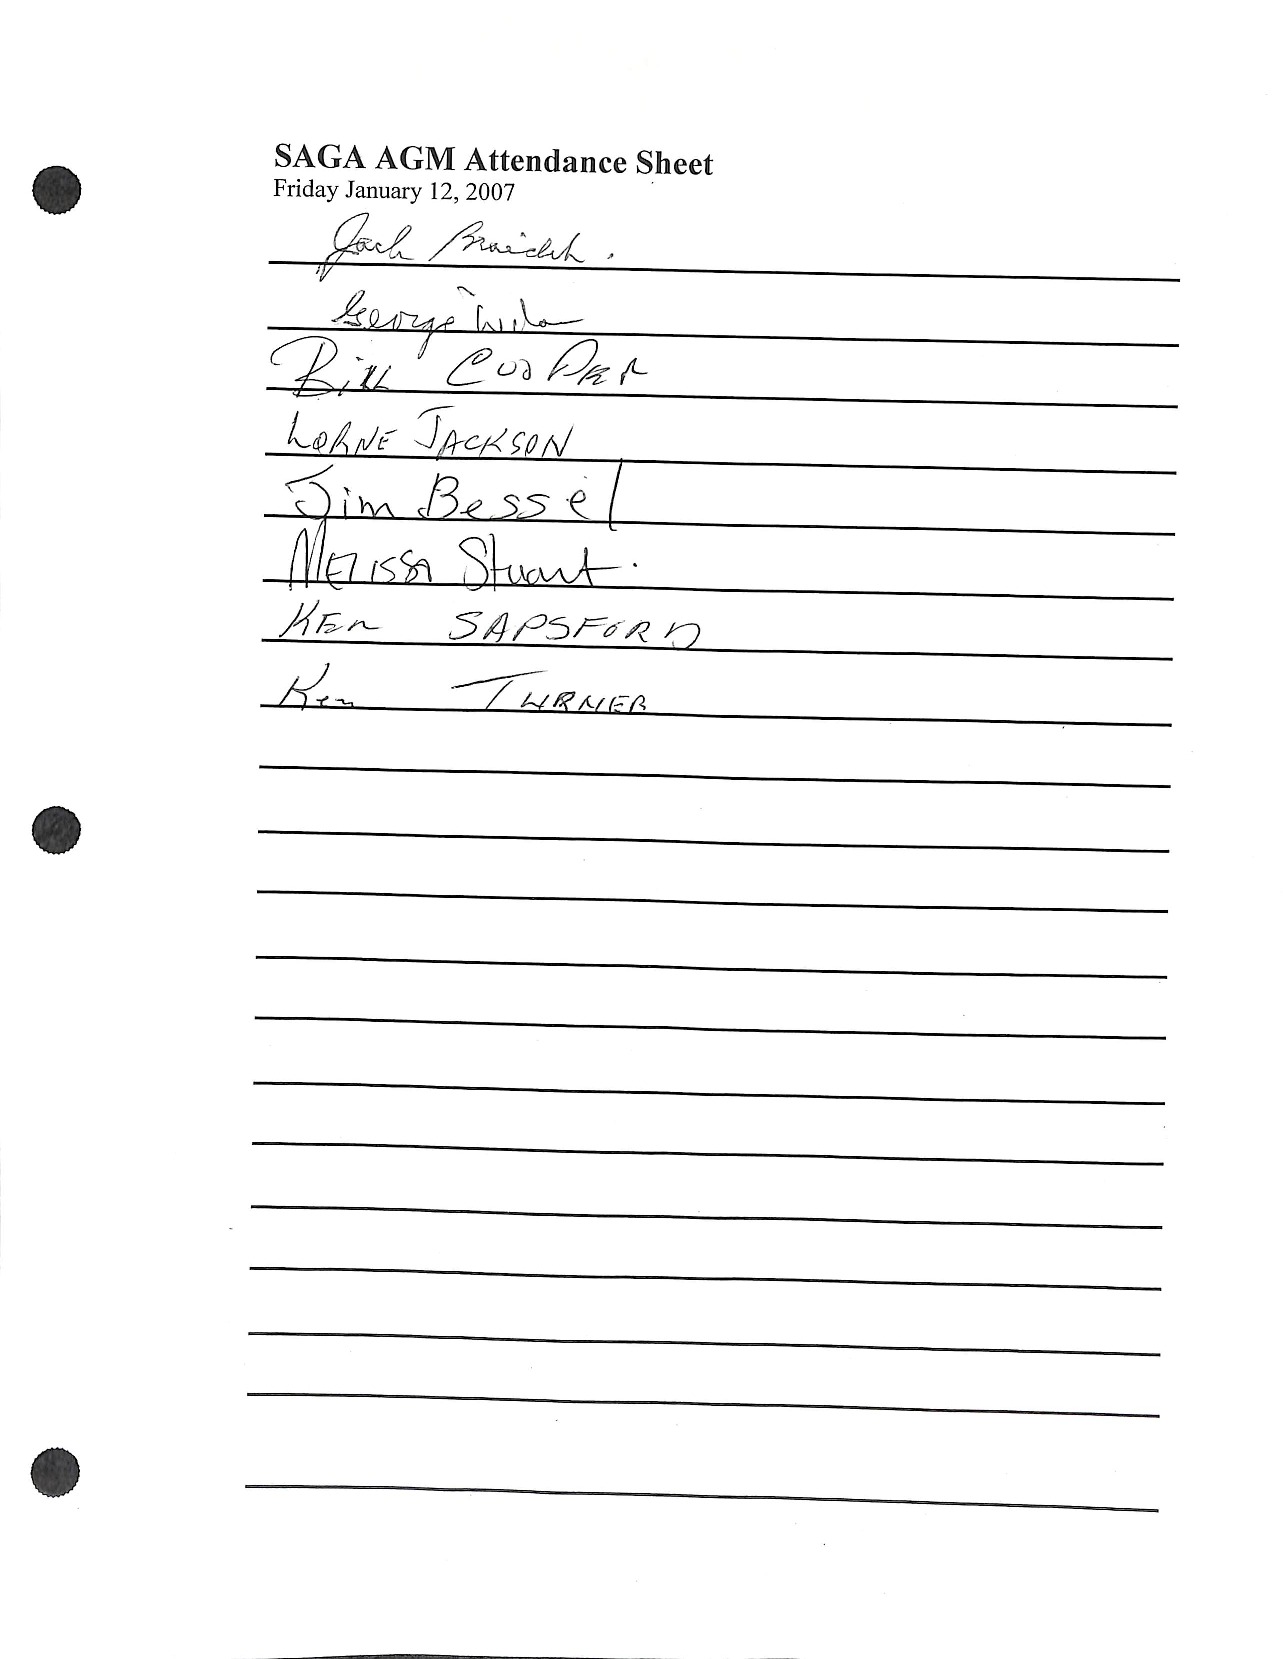 SAGA AGM Attendance Sheet
Friday January 12, 2007
Jack
George
Bill Cooper
LORNE JACKSON
Jim Bessel
MELISSA Stuart.
KEn SAPSFORD
Ken TURNER